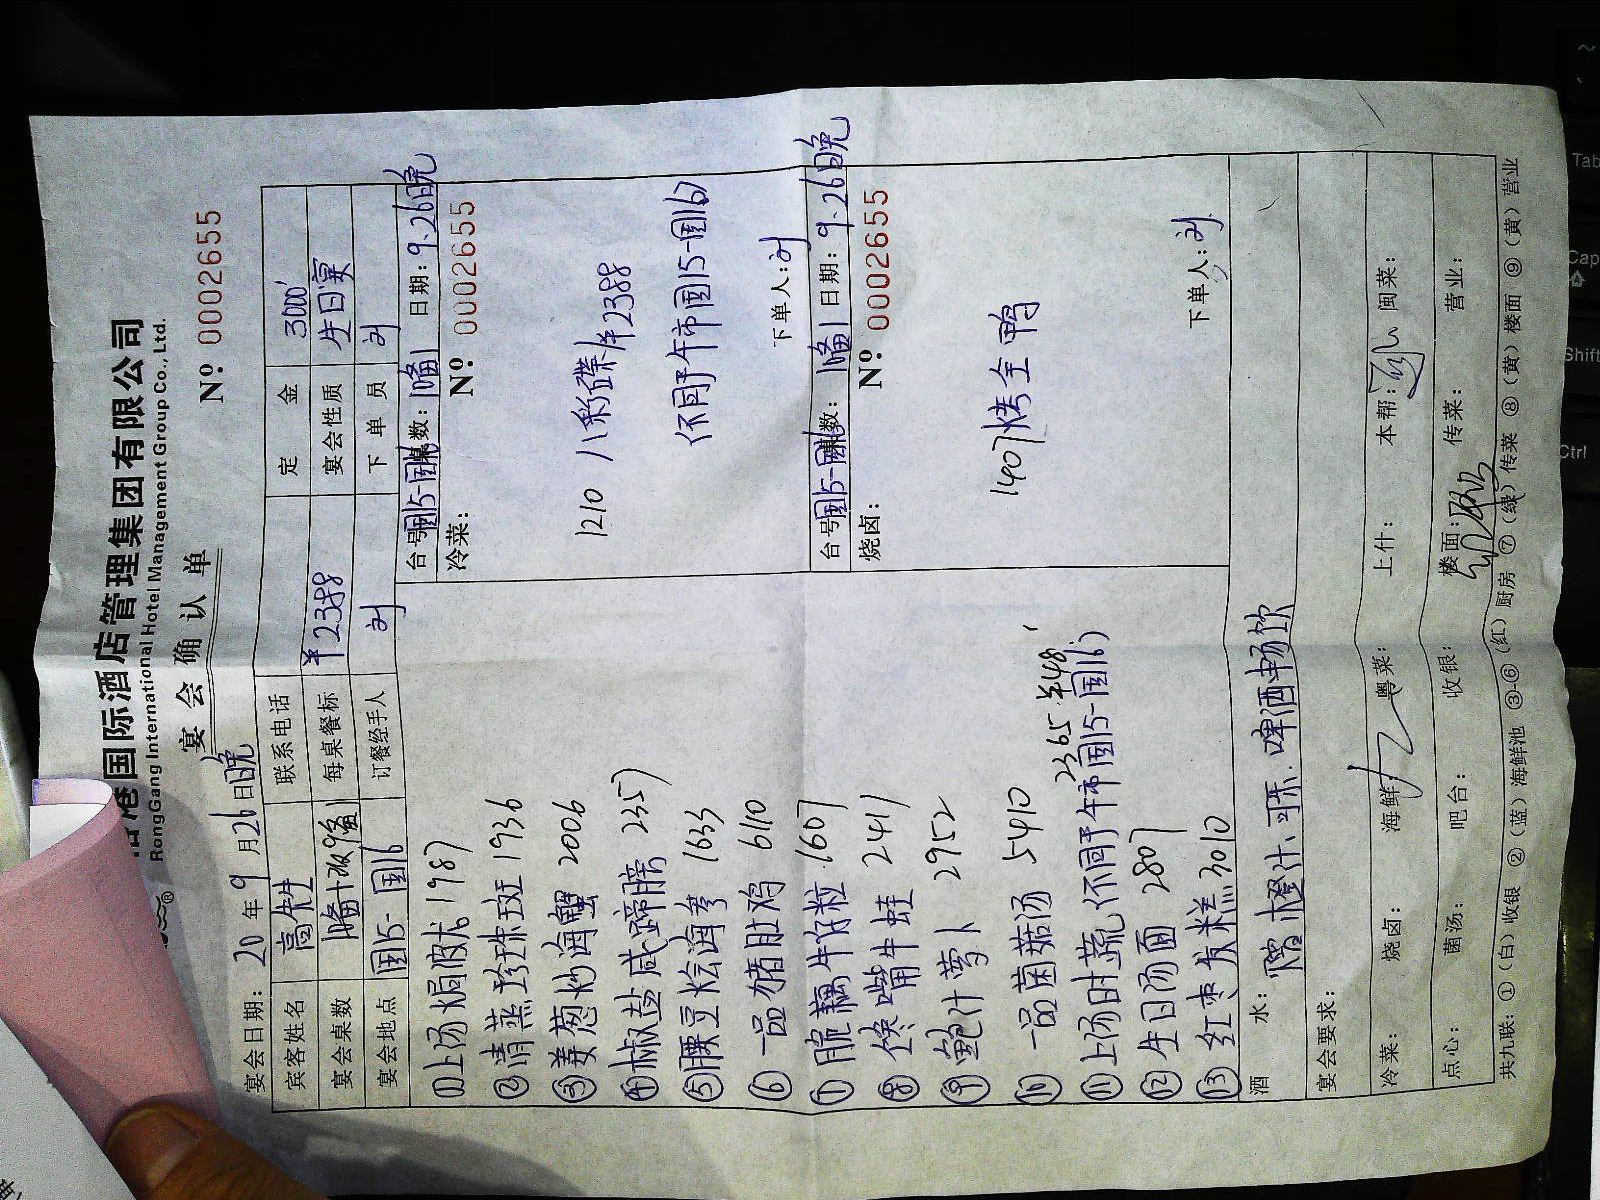 港国际酒店管理集团有限公司
RongGang International Hotel Management Group Co., Ltd.
宴会确认单
№ 0002655
宴会日期: 20 年 9 月 26 日晚
宾客姓名 高先生 联系电话 定金 3000
宴会桌数 每桌餐标 ¥2388 宴会性质 生日宴
宴会地点 国15-国16 订餐经手人 刘 下单员 刘
①上汤焗波龙 1987
②清蒸珍珠斑 1936
③姜葱炒海蟹 2006
④椒盐咸蹄膀 2357
⑤腰豆烩海参 1633
⑥一品猪肚鸡 6110
⑦脆藕牛仔粒 1607
⑧馋嘴牛蛙 2417
⑨鲍汁萝卜 2952
⑩一品菌菇汤 5410
2365 ¥48
⑪上汤时蔬(不同于午市国15-国16)
⑫生日汤面 2807
⑬红枣发糕 3010
台号: 国15-国16 桌数: 日期: 9.26日晚
冷菜: № 0002655
1210 八彩碟 ¥2388
(不同于午市国15-国16)
下单人: 刘
台号: 国15-国16 桌数: 日期: 9.26日晚
烧卤: № 0002655
1407 烤全鸭
下单人: 刘
酒水: 赠橙汁、可乐.啤酒畅饮
宴会要求:
冷菜: 烧卤: 海鲜: 粤菜: 上什: 本帮: 闽菜:
点心: 菌汤: 吧台: 收银: 楼面: 传菜: 营业:
共九联: ①(白)收银 ②(蓝)海鲜池 ③-⑥(红)厨房 ⑦(绿)传菜 ⑧(黄)楼面 ⑨(黄)营业
Tab
Cap
Shift
Ctrl